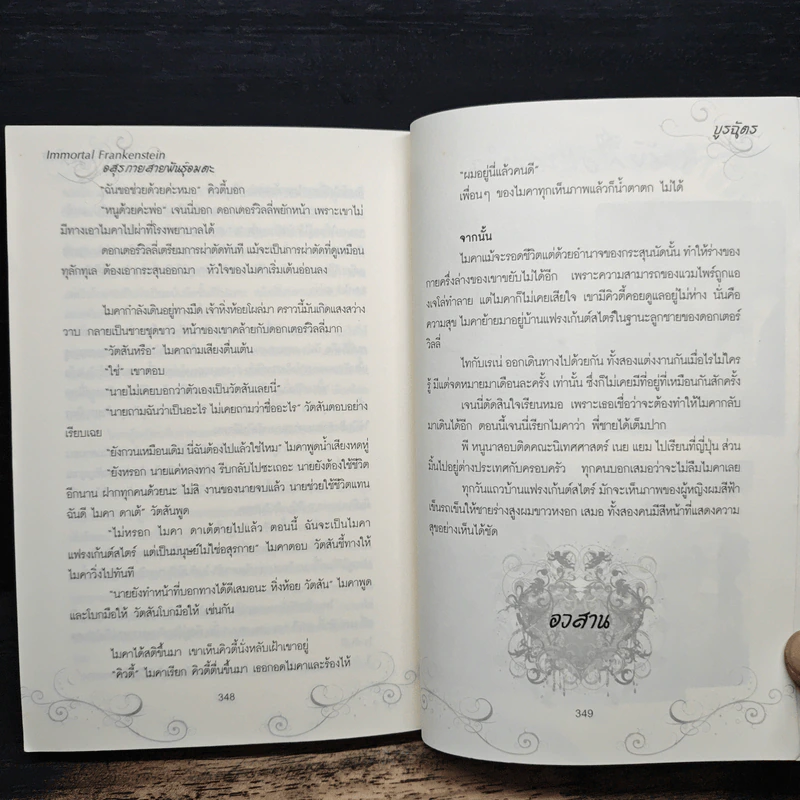 Immortal Frankenstein
อสุรกายสายพันธุ์อมตะ
"ฉันขอช่วยด้วยค่ะหมอ" คิวตี้บอก
"หนูด้วยค่ะพ่อ" เจนนี่บอก ดอกเตอร์วิลลี่พยักหน้า เพราะเขาไม่
มีทางเอาไมคาไปผ่าที่โรงพยาบาลได้
ดอกเตอร์วิลลี่เตรียมการผ่าตัดทันที แม้จะเป็นการผ่าตัดที่ดูเหมือน
ทุลักทุเล ต้องเอากระสุนออกมา หัวใจของไมคาเริ่มเต้นอ่อนลง
ไมคากำลังเดินอยู่ทางมืด เจ้าหิ่งห้อยโผล่มา คราวนี้มันเกิดแสงสว่าง
วาบ กลายเป็นชายชุดขาว หน้าของเขาคล้ายกับดอกเตอร์วิลลี่มาก
"วัตสันหรือ" ไมคาถามเสียงตื่นเต้น
"ใช่" เขาตอบ
"นายไม่เคยบอกว่าตัวเองเป็นวัตสันเลยนี่"
"นายถามฉันว่าเป็นอะไร ไม่เคยถามว่าชื่ออะไร" วัตสันตอบอย่าง
เรียบเฉย
"ยังกวนเหมือนเดิม นี่ฉันต้องไปแล้วใช่ไหม" ไมคาพูดน้ำเสียงหดหู่
"ยังหรอก นายแค่หลงทาง รีบกลับไปซะเถอะ นายยังต้องใช้ชีวิต
อีกนาน ฝากทุกคนด้วยนะ ไม่สิ งานของนายจบแล้ว นายช่วยใช้ชีวิตแทน
ฉันดี ไมคา ดาเต้" วัตสันพูด
"ไม่หรอก ไมคา ดาเต้ตายไปแล้ว ตอนนี้ ฉันจะเป็นไมคา
แฟรงเก้นต์สไตร์ แต่เป็นมนุษย์ไม่ใช่อสุรกาย" ไมคาตอบ วัตสันชี้ทางให้
ไมคาวิ่งไปทันที
"นายยังทำหน้าที่บอกทางได้ดีเสมอนะ หิ่งห้อย วัตสัน" ไมคาพูด
และโบกมือให้ วัตสันโบกมือให้ เช่นกัน
ไมคาได้สติขึ้นมา เขาเห็นคิวตี้นั่งหลับเฝ้าเขาอยู่
"คิวตี้" ไมคาเรียก คิวตี้ตื่นขึ้นมา เธอกอดไมคาและร้องไห้
348
บูรฉัตร
"ผมอยู่นี่แล้วคนดี"
เพื่อนๆ ของไมคาทุกเห็นภาพแล้วก็น้ำตาตก ไม่ได้
จากนั้น
ไมคาแม้จะรอดชีวิตแต่ด้วยอำนาจของกระสุนนัดนั้น ทำให้ร่างของ
กายครึ่งล่างของเขาขยับไม่ได้อีก เพราะความสามารถของแวมไพร์ถูกแอ
งเจโล่ทำลาย แต่ไมคาก็ไม่เคยเสียใจ เขามีคิวตี้คอยดูแลอยู่ไม่ห่าง นั่นคือ
ความสุข ไมคาย้ายมาอยู่บ้านแฟรงเก้นต์สไตร์ในฐานะลูกชายของดอกเตอร์
วิลลี่
ไทกับเรเน่ ออกเดินทางไปด้วยกัน ทั้งสองแต่งงานกันเมื่อไรไม่ใคร
รู้ มีแต่จดหมายมาเดือนละครั้ง เท่านั้น ซึ่งก็ไม่เคยมีที่อยู่ที่เหมือนกันสักครั้ง
เจนนี่ตัดสินใจเรียนหมอ เพราะเธอเชื่อว่าจะต้องทำให้ไมคากลับ
มาเดินได้อีก ตอนนี้เจนนี่เรียกไมคาว่า พี่ชายได้เต็มปาก
พี หนูนาสอบติดคณะนิเทศศาสตร์ เนย แยม ไปเรียนที่ญี่ปุ่น ส่วน
มิ้นไปอยู่ต่างประเทศกับครอบครัว ทุกคนบอกเสมอว่าจะไม่ลืมไมคาเลย
ทุกวันแถวบ้านแฟรงเก้นต์สไตร์ มักจะเห็นภาพของผู้หญิงผมสีฟ้า
เข็นรถเข็นให้ชายร่างสูงผมขาวหงอก เสมอ ทั้งสองคนมีสีหน้าที่แสดงความ
สุขอย่างเห็นได้ชัด
อวสาน
349